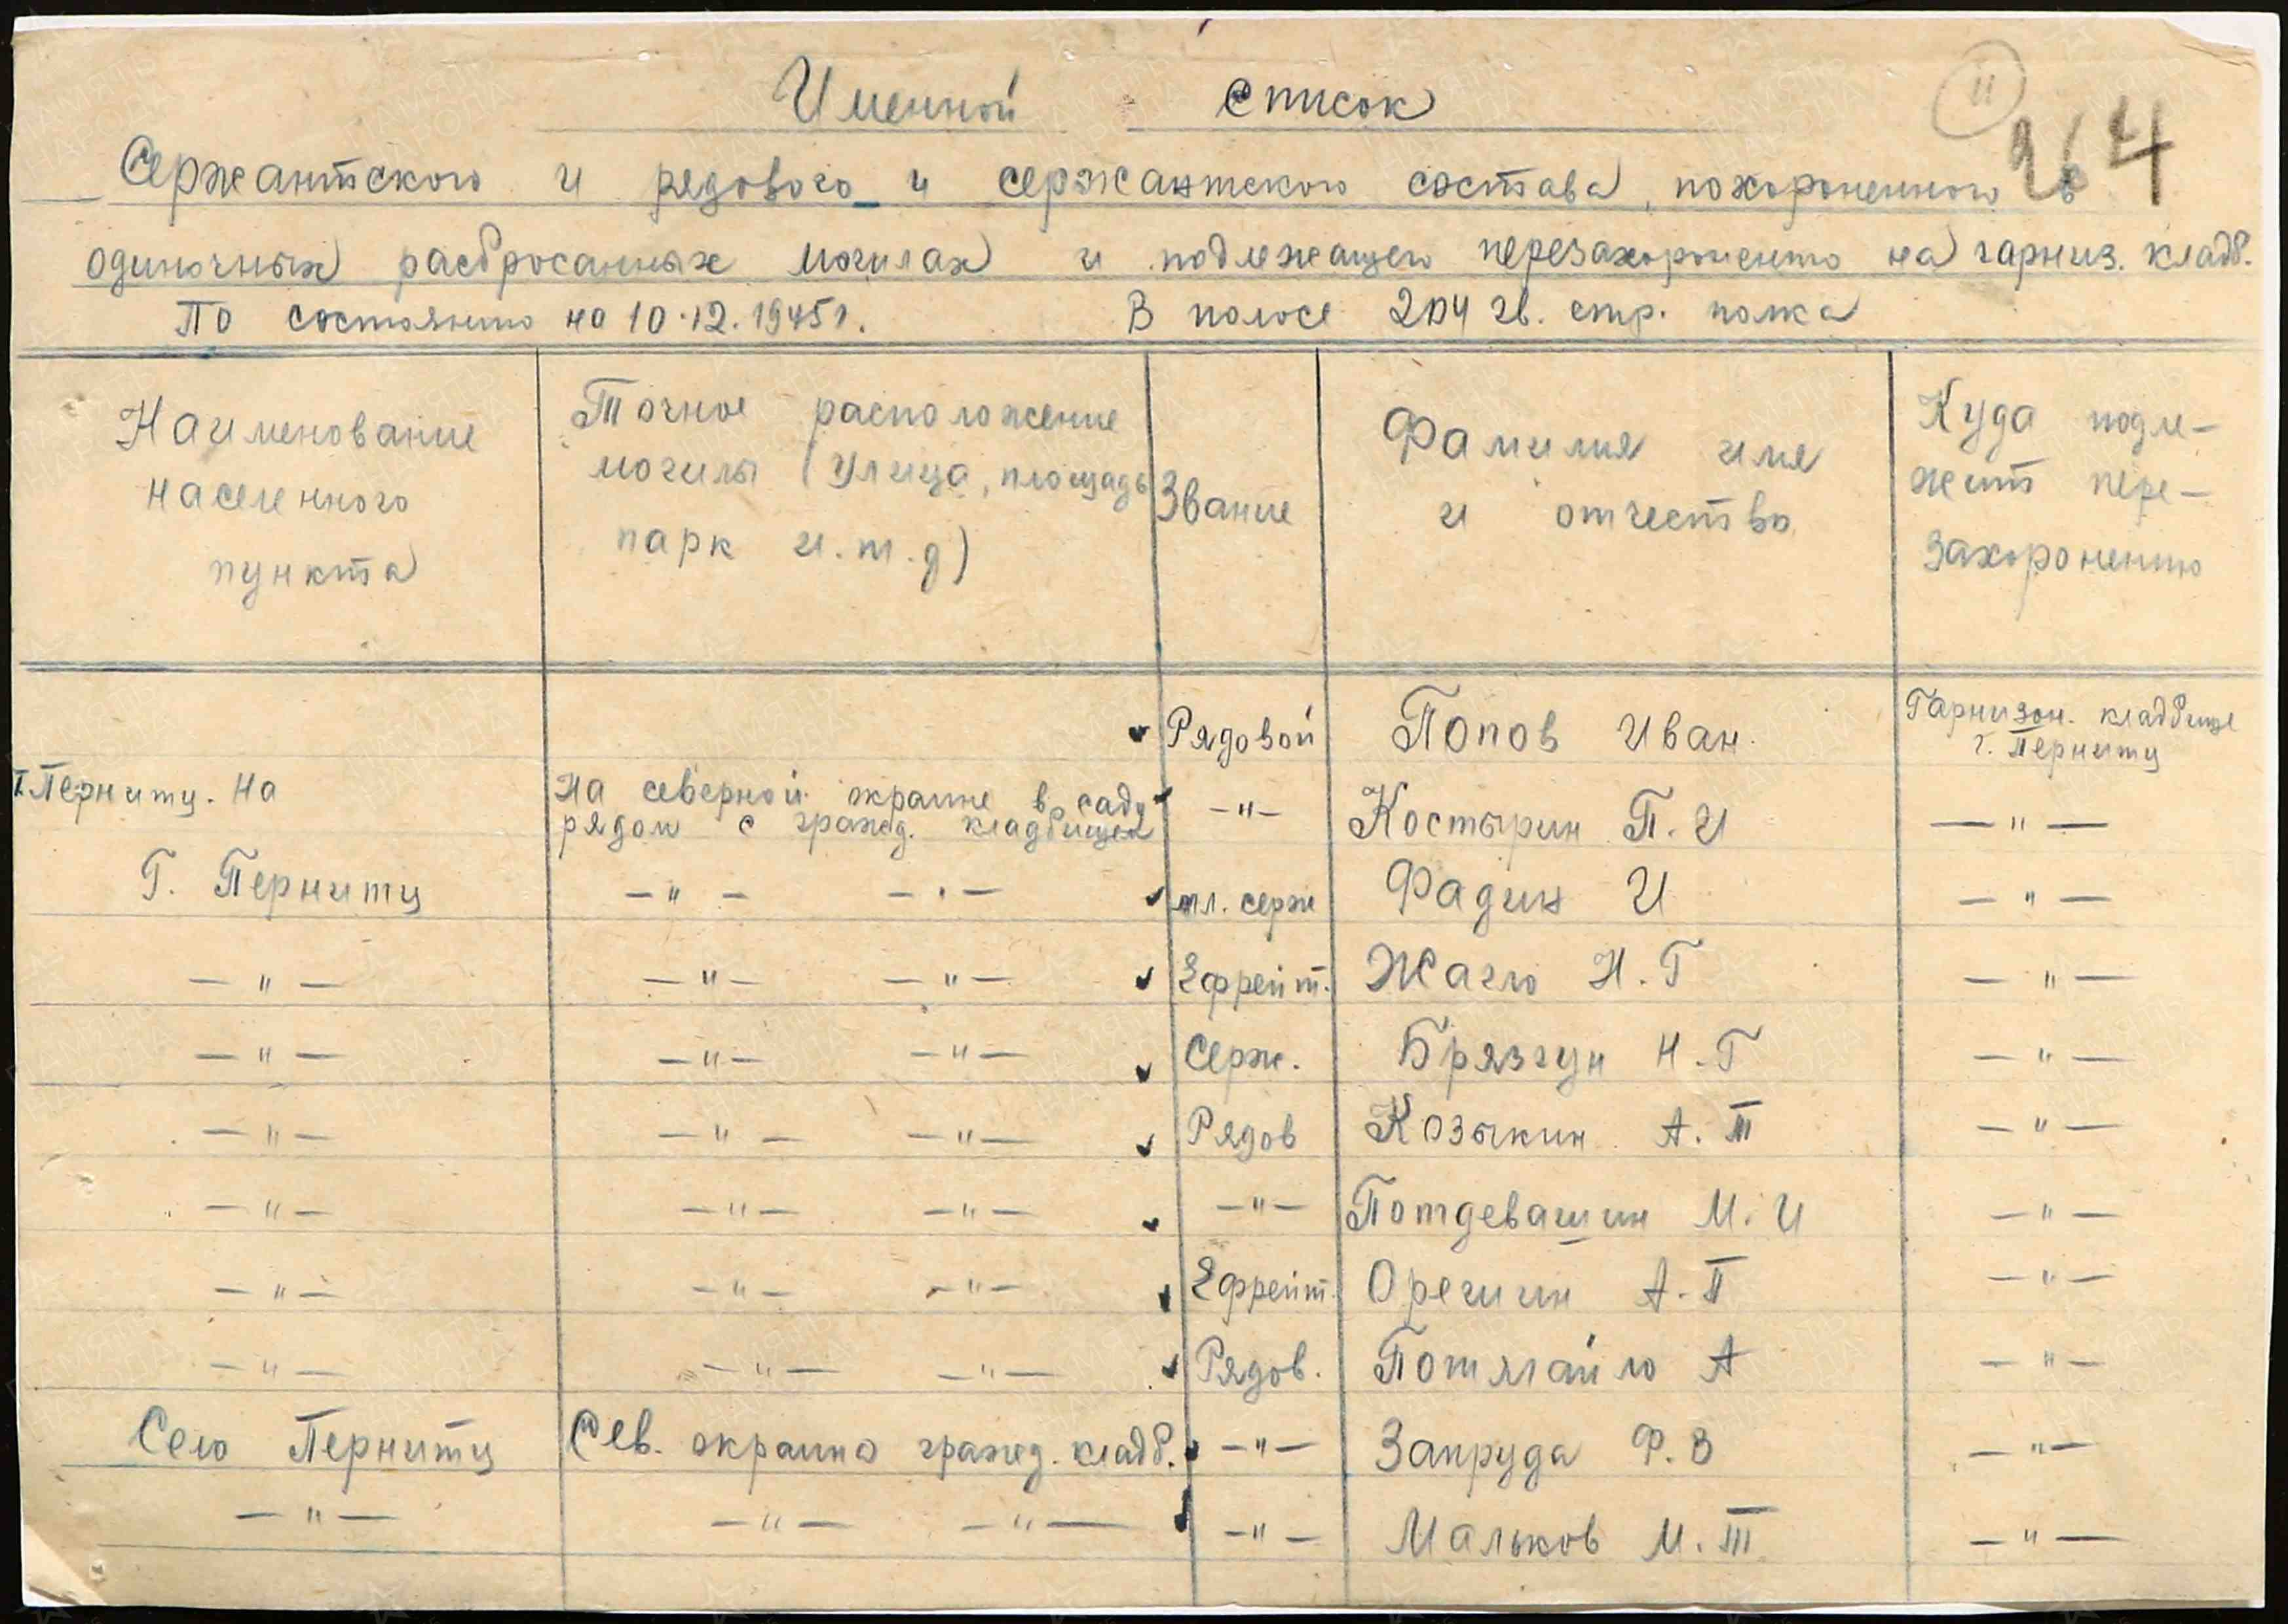 11
264
Именной список
Сержантского и рядового и сержантского состава, похороненного в
одиночных разбросанных могилах и подлежащего перезахоронению на гарниз. кладб.
По состоянию на 10.12.1945г. В полосе 204 гв. стр. полка
Наименование населенного пункта
Точное расположение могилы (улица, площадь парк и.т.д)
Звание
Фамилия имя и отчество
Куда подле-жит пере-захоронению
Рядовой Попов Иван. Гарнизон. кладбище г. Перниту
г. Перниту. На На северной окраине в саду рядом с гражд. кладбищем —"— Костырин П.И —"—
Г. Перниту —"— —"— мл. серж Фадин И —"—
—"— —"— —"— Ефрейт. Жагло Н.Г —"—
—"— —"— —"— Серж. Брязгун Н.Г —"—
—"— —"— —"— Рядов Козыкин А.Т —"—
—"— —"— —"— —"— Потдевашин М.И —"—
—"— —"— —"— Ефрейт. Орешин А.П —"—
—"— —"— —"— Рядов. Потягайло А —"—
Село Перниту Сев. окраина гражд. кладб. —"— Запруда Ф.В —"—
—"— —"— —"— —"— Мальков М.Т —"—